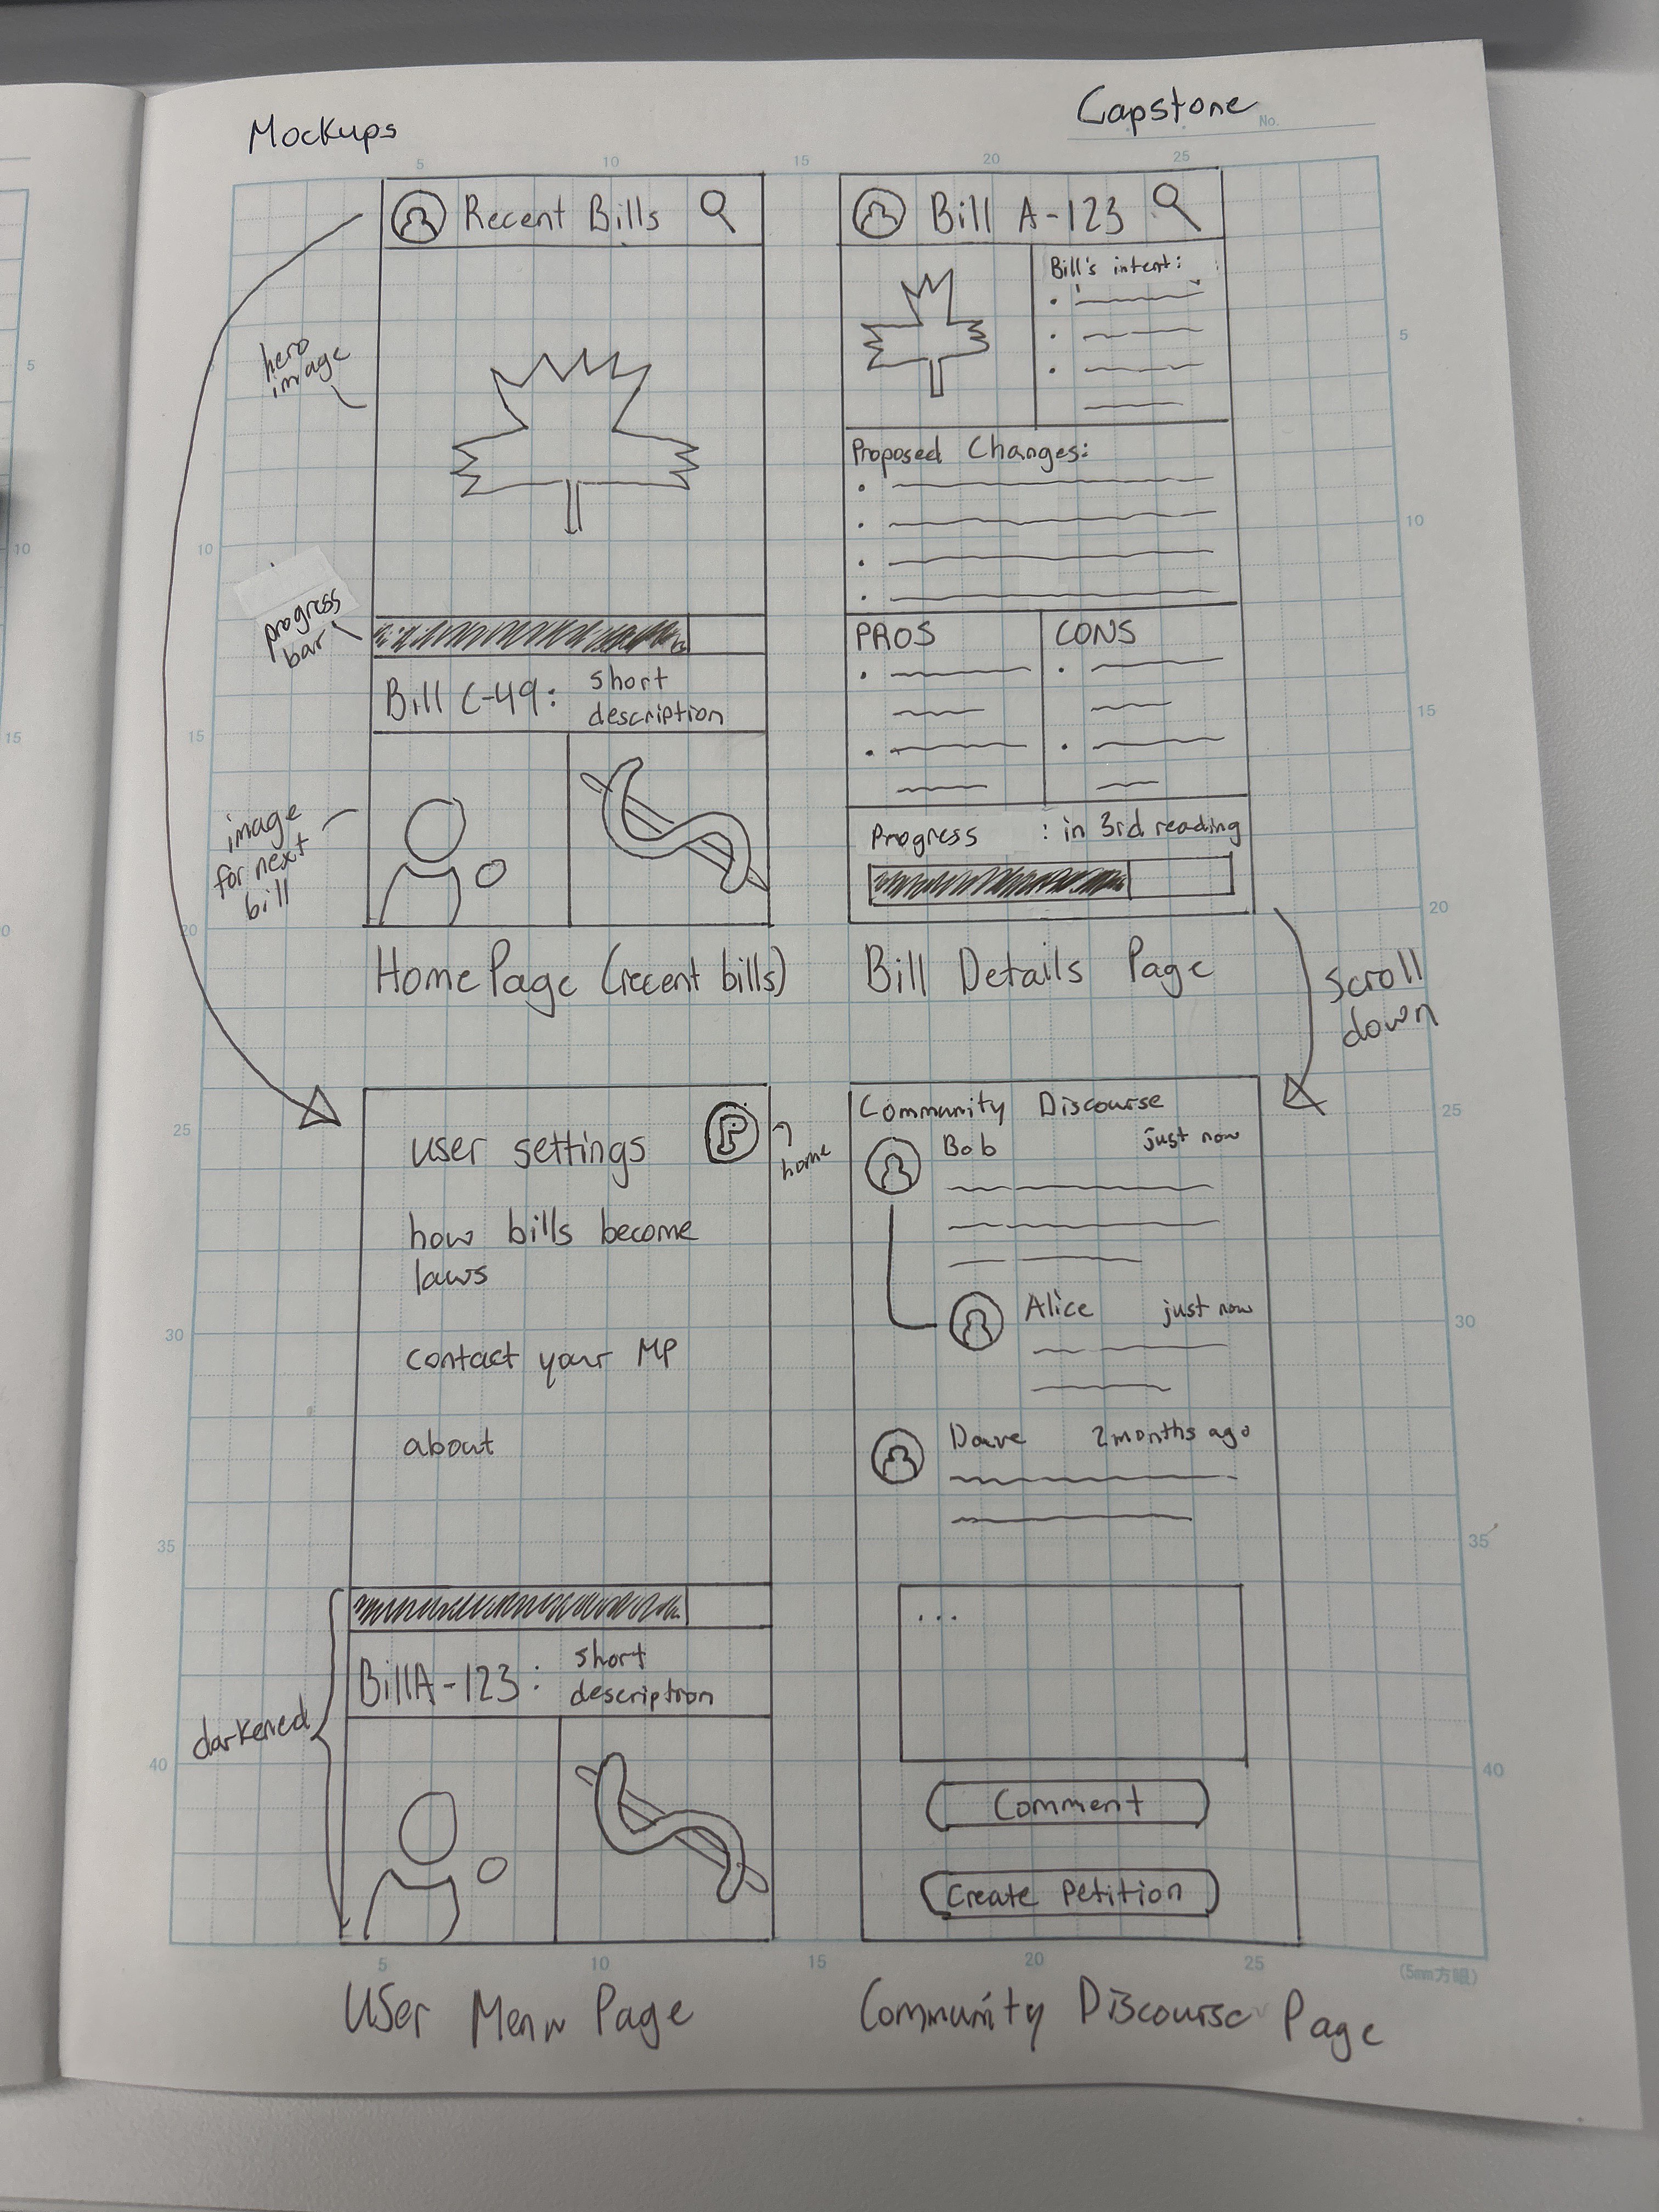 Mockups
Capstone
No.
5 10 15 20 25
Recent Bills
hero
image
progress
bar
Bill C-49: short
description
image
for next
bill
Home Page (recent bills)
Bill A-123
Bill's intent:
Proposed Changes:
PROS
CONS
Progress : in 3rd reading
Bill Details Page
scroll
down
5
10
15
20
25
30
35
40
5
10
15
20
25
30
35
40
user settings
P
home
how bills become
laws
contact your MP
about
darkened
Bill A-123: short
description
User Menu Page
Community Discourse
Bob just now
Alice just now
Dave 2 months ago
...
Comment
Create Petition
Community Discourse Page
5 10 15 20 25
(5mm方眼)
5
10
15
0